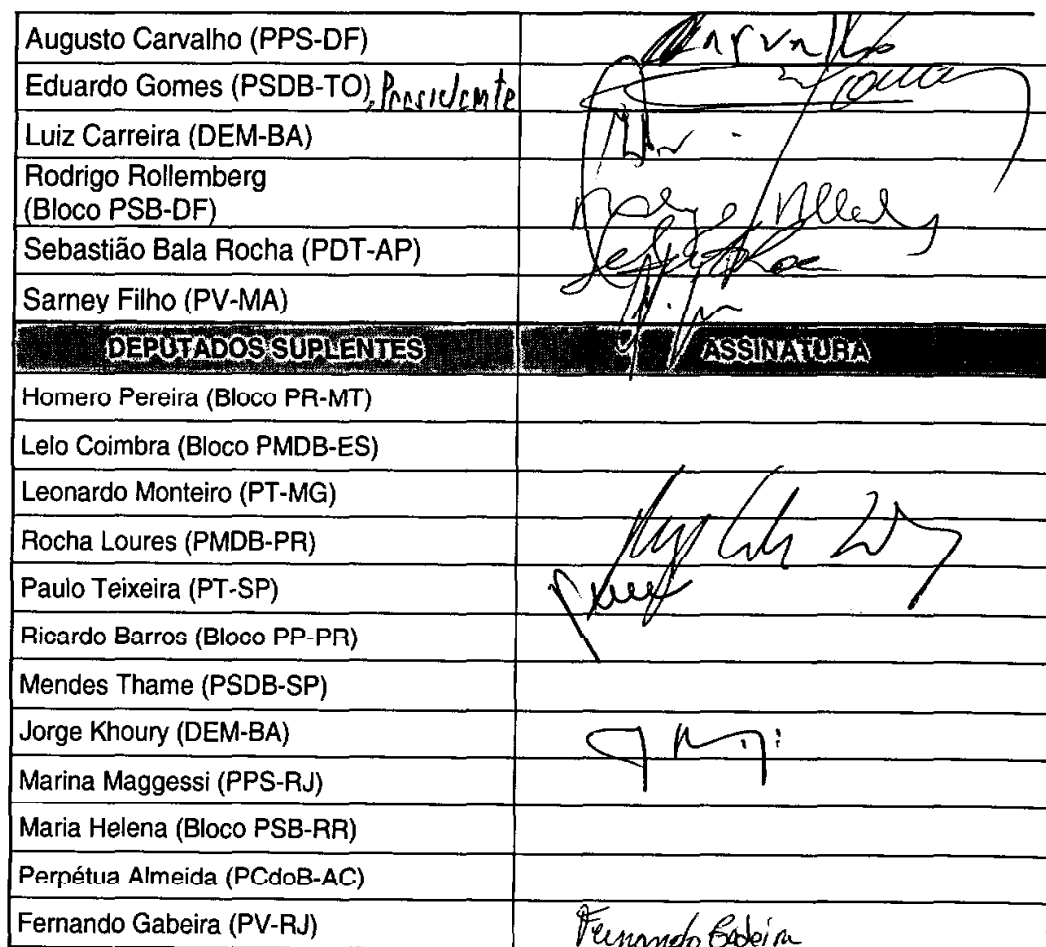 Augusto Carvalho (PPS-DF) Carvalho
Eduardo Gomes (PSDB-TO), Presidente
Luiz Carreira (DEM-BA)
Rodrigo Rollemberg
(Bloco PSB-DF)
Sebastião Bala Rocha (PDT-AP)
Sarney Filho (PV-MA)
DEPUTADOS SUPLENTES ASSINATURA
Homero Pereira (Bloco PR-MT)
Lelo Coimbra (Bloco PMDB-ES)
Leonardo Monteiro (PT-MG)
Rocha Loures (PMDB-PR)
Paulo Teixeira (PT-SP)
Ricardo Barros (Bloco PP-PR)
Mendes Thame (PSDB-SP)
Jorge Khoury (DEM-BA)
Marina Maggessi (PPS-RJ)
Maria Helena (Bloco PSB-RR)
Perpétua Almeida (PCdoB-AC)
Fernando Gabeira (PV-RJ) Fernando Gabeira